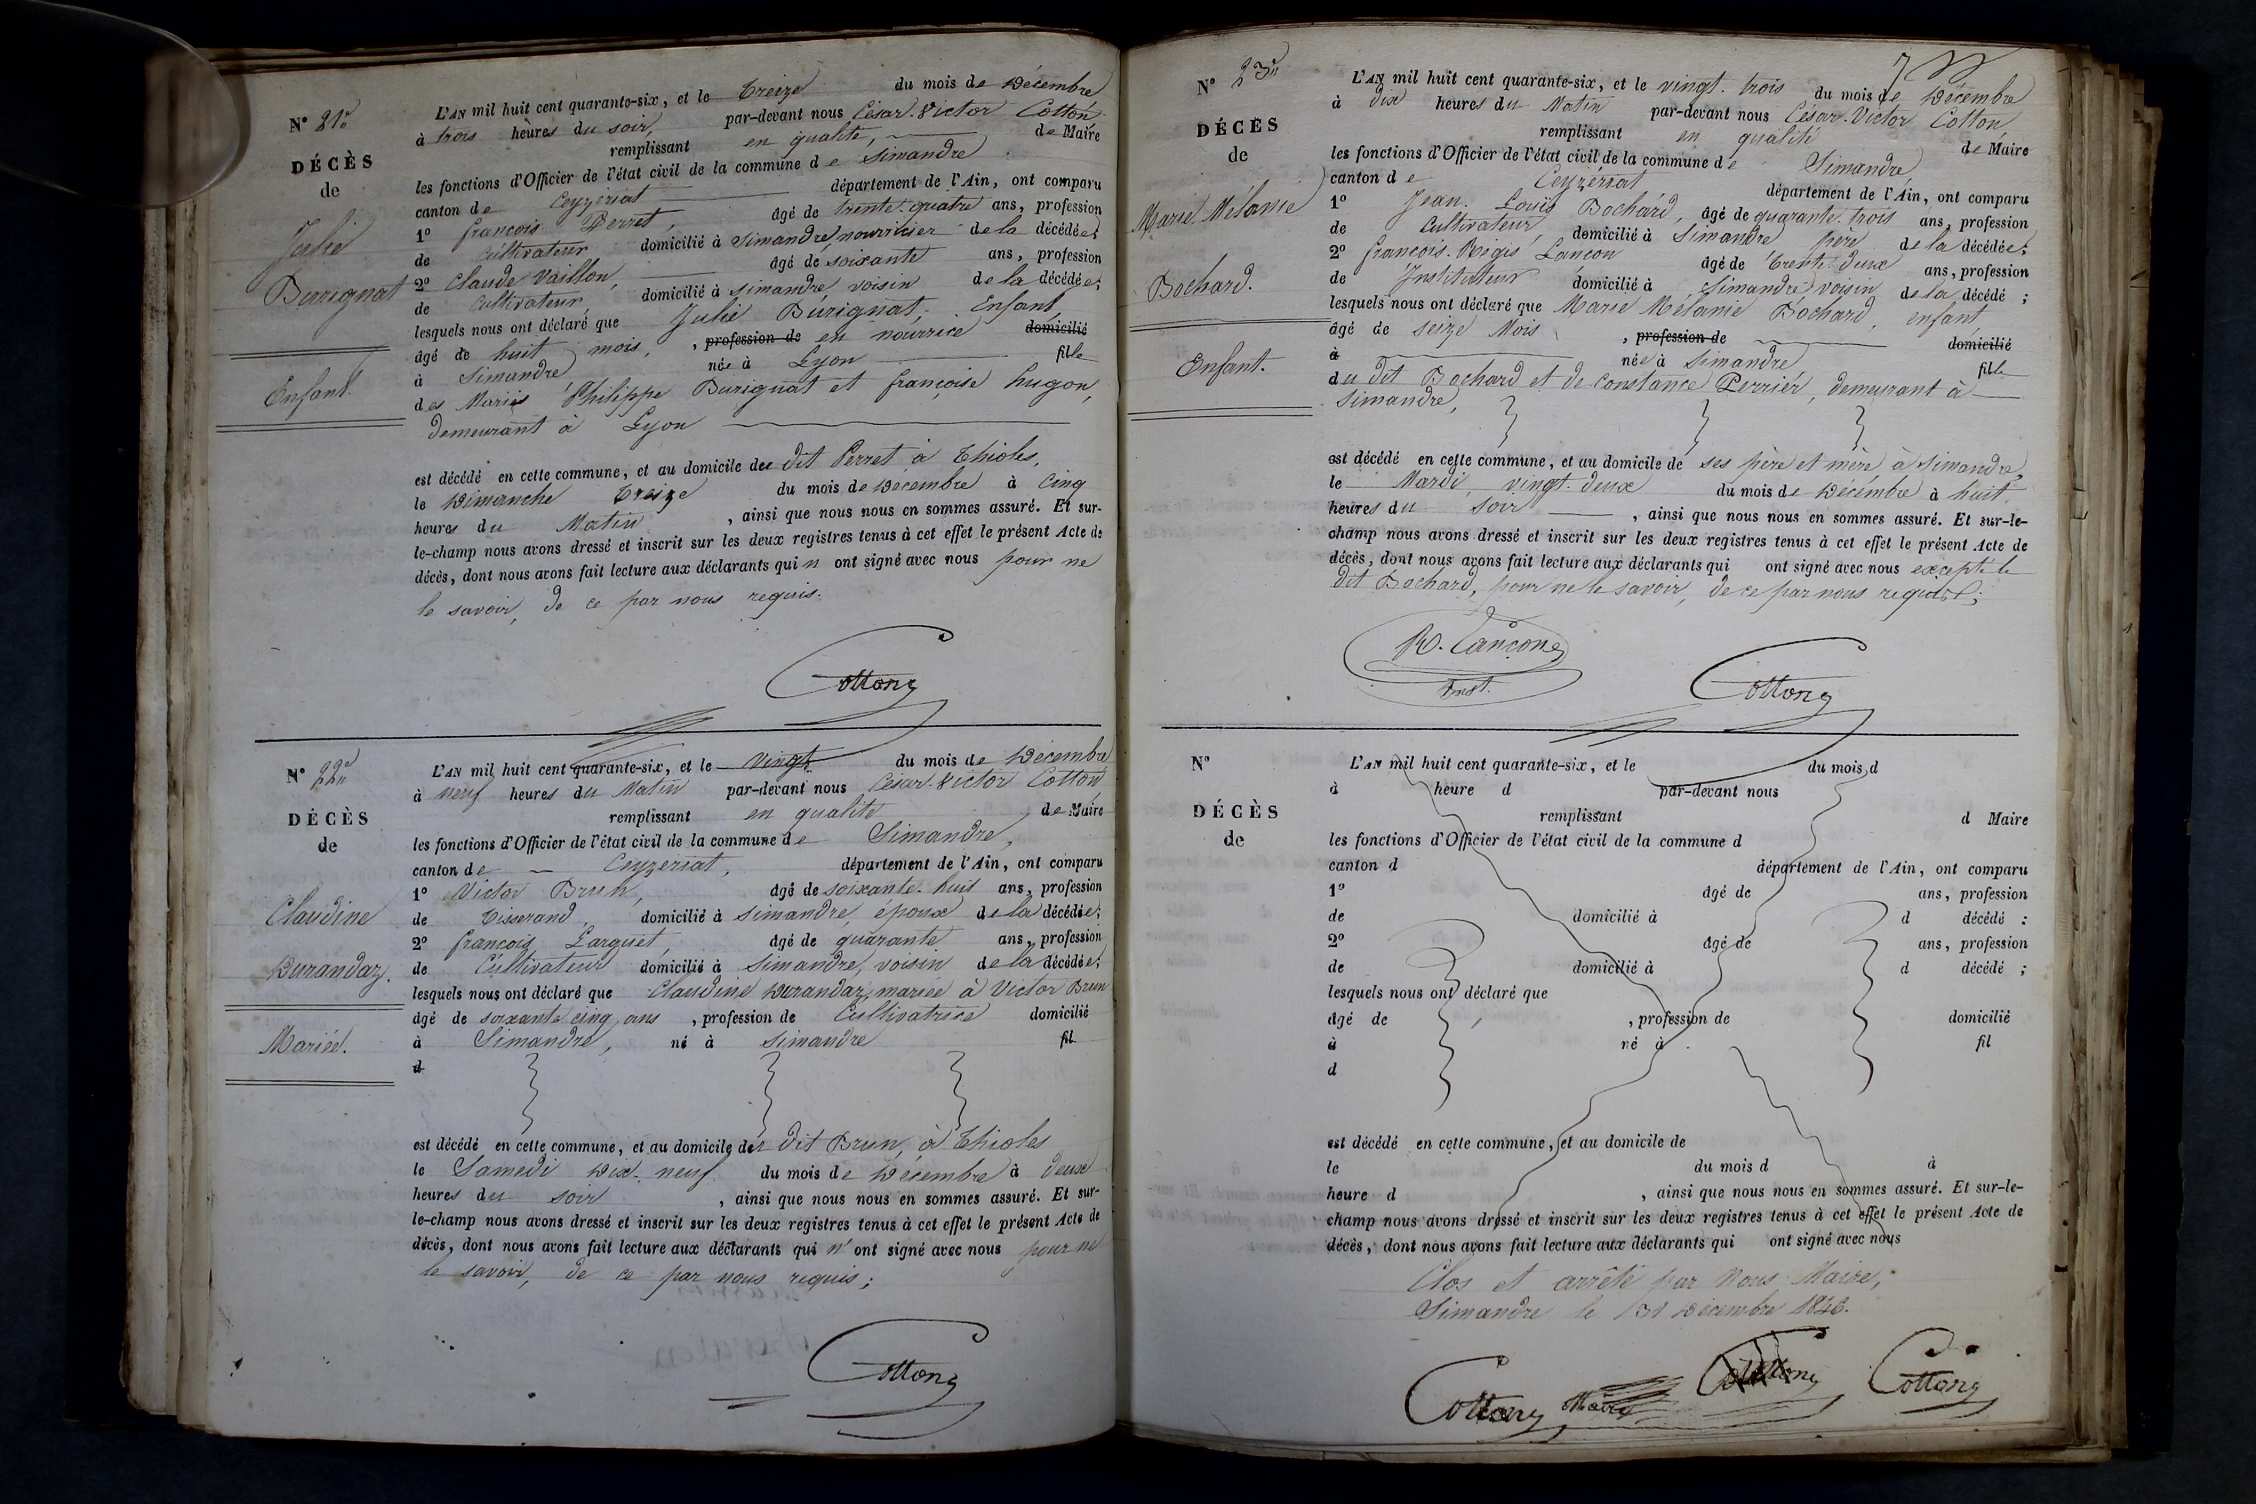 N° 21e
DÉCÈS
de
Julie
Burignat
Enfant.
L'AN mil huit cent quarante-six, et le treize du mois de Décembre
à trois heures du soir, par-devant nous César-Victor Cotton
remplissant en qualité, de Maire
les fonctions d'Officier de l'état civil de la commune de Simandre
canton de Ceyzeriat département de l'Ain, ont comparu
1° françois Perret, âgé de trente-quatre ans, profession
de cultivateur domicilié à Simandre, nourricier de la décédée;
2° Claude Vaillon, âgé de soixante ans, profession
de Cultivateur domicilié à Simandre voisin de la décédée;
lesquels nous ont déclaré que Julie Burignat, Enfant,
âgé de huit mois, , profession de en nourrice domicilié
à Simandre née à Lyon fille
des Mariés Philippe Burignat et françoise hugon,
demeurant à Lyon
est décédé en cette commune, et au domicile du dit Perret à Thioles,
le Dimanche treize du mois de Décembre à Cinq
heures du Matin , ainsi que nous nous en sommes assuré. Et sur-
le-champ nous avons dressé et inscrit sur les deux registres tenus à cet effet le présent Acte de
décès, dont nous avons fait lecture aux déclarants qui n ont signé avec nous pour ne
le savoir, de ce par nous requis.
Cotton
N° 22e
DÉCÈS
de
Claudine
Durandaz.
Mariée.
L'AN mil huit cent quarante-six, et le Vingt du mois de Décembre
à neuf heures du Matin par-devant nous César-Victor Cotton
remplissant en qualité de Maire
les fonctions d'Officier de l'état civil de la commune de Simandre,
canton de Ceyzeriat, département de l'Ain, ont comparu
1° Victor Brun, âgé de soixante-huit ans, profession
de tisserand, domicilié à Simandre, époux de la décédée;
2° françois Larguet, âgé de quarante ans, profession
de Cultivateur domicilié à Simandre, voisin de la décédée;
lesquels nous ont déclaré que Claudine Durandaz, mariée à Victor Brun
âgé de soixante cinq ans , profession de Cultivatrice domicilié
à Simandre, né à Simandre fil
d
est décédé en cette commune, et au domicile du dit Brun, à Thioles
le Samedi dix-neuf du mois de Décembre à deux
heures du soir , ainsi que nous nous en sommes assuré. Et sur-
le-champ nous avons dressé et inscrit sur les deux registres tenus à cet effet le présent Acte de
décès, dont nous avons fait lecture aux déclarants qui n' ont signé avec nous pour ne
le savoir, de ce par nous requis;
Cotton
N° 23e
DÉCÈS
de
Marie Mélanie
Bochard.
Enfant.
L'AN mil huit cent quarante-six, et le vingt-trois du mois de Décembre
à dix heures du Matin par-devant nous César-Victor Cotton
remplissant en qualité de Maire
les fonctions d'Officier de l'état civil de la commune de Simandre,
canton de Ceyzériat département de l'Ain, ont comparu
1° Jean-Louis Bochard, âgé de quarante-trois ans, profession
de Cultivateur, domicilié à Simandre père de la décédée;
2° françois-Régis Lançon âgé de trente-deux ans, profession
de Instituteur domicilié à Simandre voisin de la décédé ;
lesquels nous ont déclaré que Marie Mélanie Bochard, enfant
âgé de seize Mois , profession de domicilié
à née à Simandre fille
du dit Bochard et de Constance Perrier, demeurant à
Simandre,
est décédé en cette commune, et au domicile de ses père et mère à Simandre
le Mardi, vingt-deux du mois de Décembre à huit
heures du soir , ainsi que nous nous en sommes assuré. Et sur-le-
champ nous avons dressé et inscrit sur les deux registres tenus à cet effet le présent Acte de
décès, dont nous avons fait lecture aux déclarants qui ont signé avec nous excepté le
dit Bochard, pour ne le savoir, de ce par nous requis;
R. Lançon
Inst.
Cotton
N°
DÉCÈS
de
L'AN mil huit cent quarante-six, et le du mois d
à heure d par-devant nous
remplissant d Maire
les fonctions d'Officier de l'état civil de la commune d
canton d département de l'Ain, ont comparu
1° âgé de ans, profession
de domicilié à d décédé :
2° âgé de ans, profession
de domicilié à d décédé ;
lesquels nous ont déclaré que
âgé de , profession de domicilié
à né à fil
d
est décédé en cette commune, et au domicile de
le du mois d à
heure d , ainsi que nous nous en sommes assuré. Et sur-le-
champ nous avons dressé et inscrit sur les deux registres tenus à cet effet le présent Acte de
décès, dont nous avons fait lecture aux déclarants qui ont signé avec nous
Clos et arrêté par Nous Maire,
Simandre le 31 Décembre 1846.
Cotton Maire Cotton Cotton